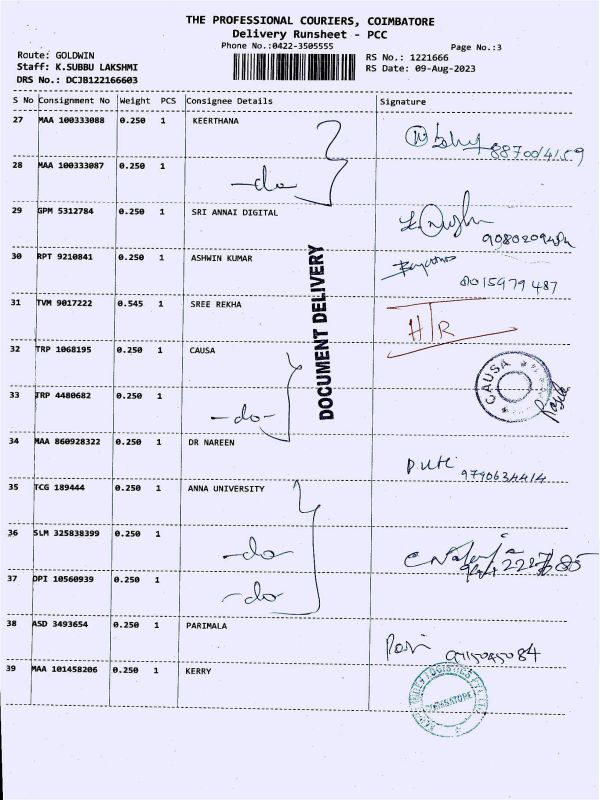 THE PROFESSIONAL COURIERS, COIMBATORE
Delivery Runsheet - PCC
Phone No.:0422-3505555
Page No.:3
Route: GOLDWIN
RS No.: 1221666
Staff: K.SUBBU LAKSHMI
RS Date: 09-Aug-2023
DRS No.: DCJB122166603
S No Consignment No Weight PCS Consignee Details Signature
27 MAA 100333088 0.250 1 KEERTHANA
28 MAA 100333087 0.250 1 -do-
29 GPM 5312784 0.250 1 SRI ANNAI DIGITAL
30 RPT 9210841 0.250 1 ASHWIN KUMAR
8015979487
31 TVM 9017222 0.545 1 SREE REKHA
DOCUMENT DELIVERY
32 TRP 1068195 0.250 1 CAUSA
CAUSA
33 TRP 4480682 0.250 1 -do-
34 MAA 860928322 0.250 1 DR NAREEN
35 TCG 189444 0.250 1 ANNA UNIVERSITY
36 SLM 325838399 0.250 1 -do-
37 DPI 10560939 0.250 1 -do-
38 ASD 3493654 0.250 1 PARIMALA
39 MAA 101458206 0.250 1 KERRY